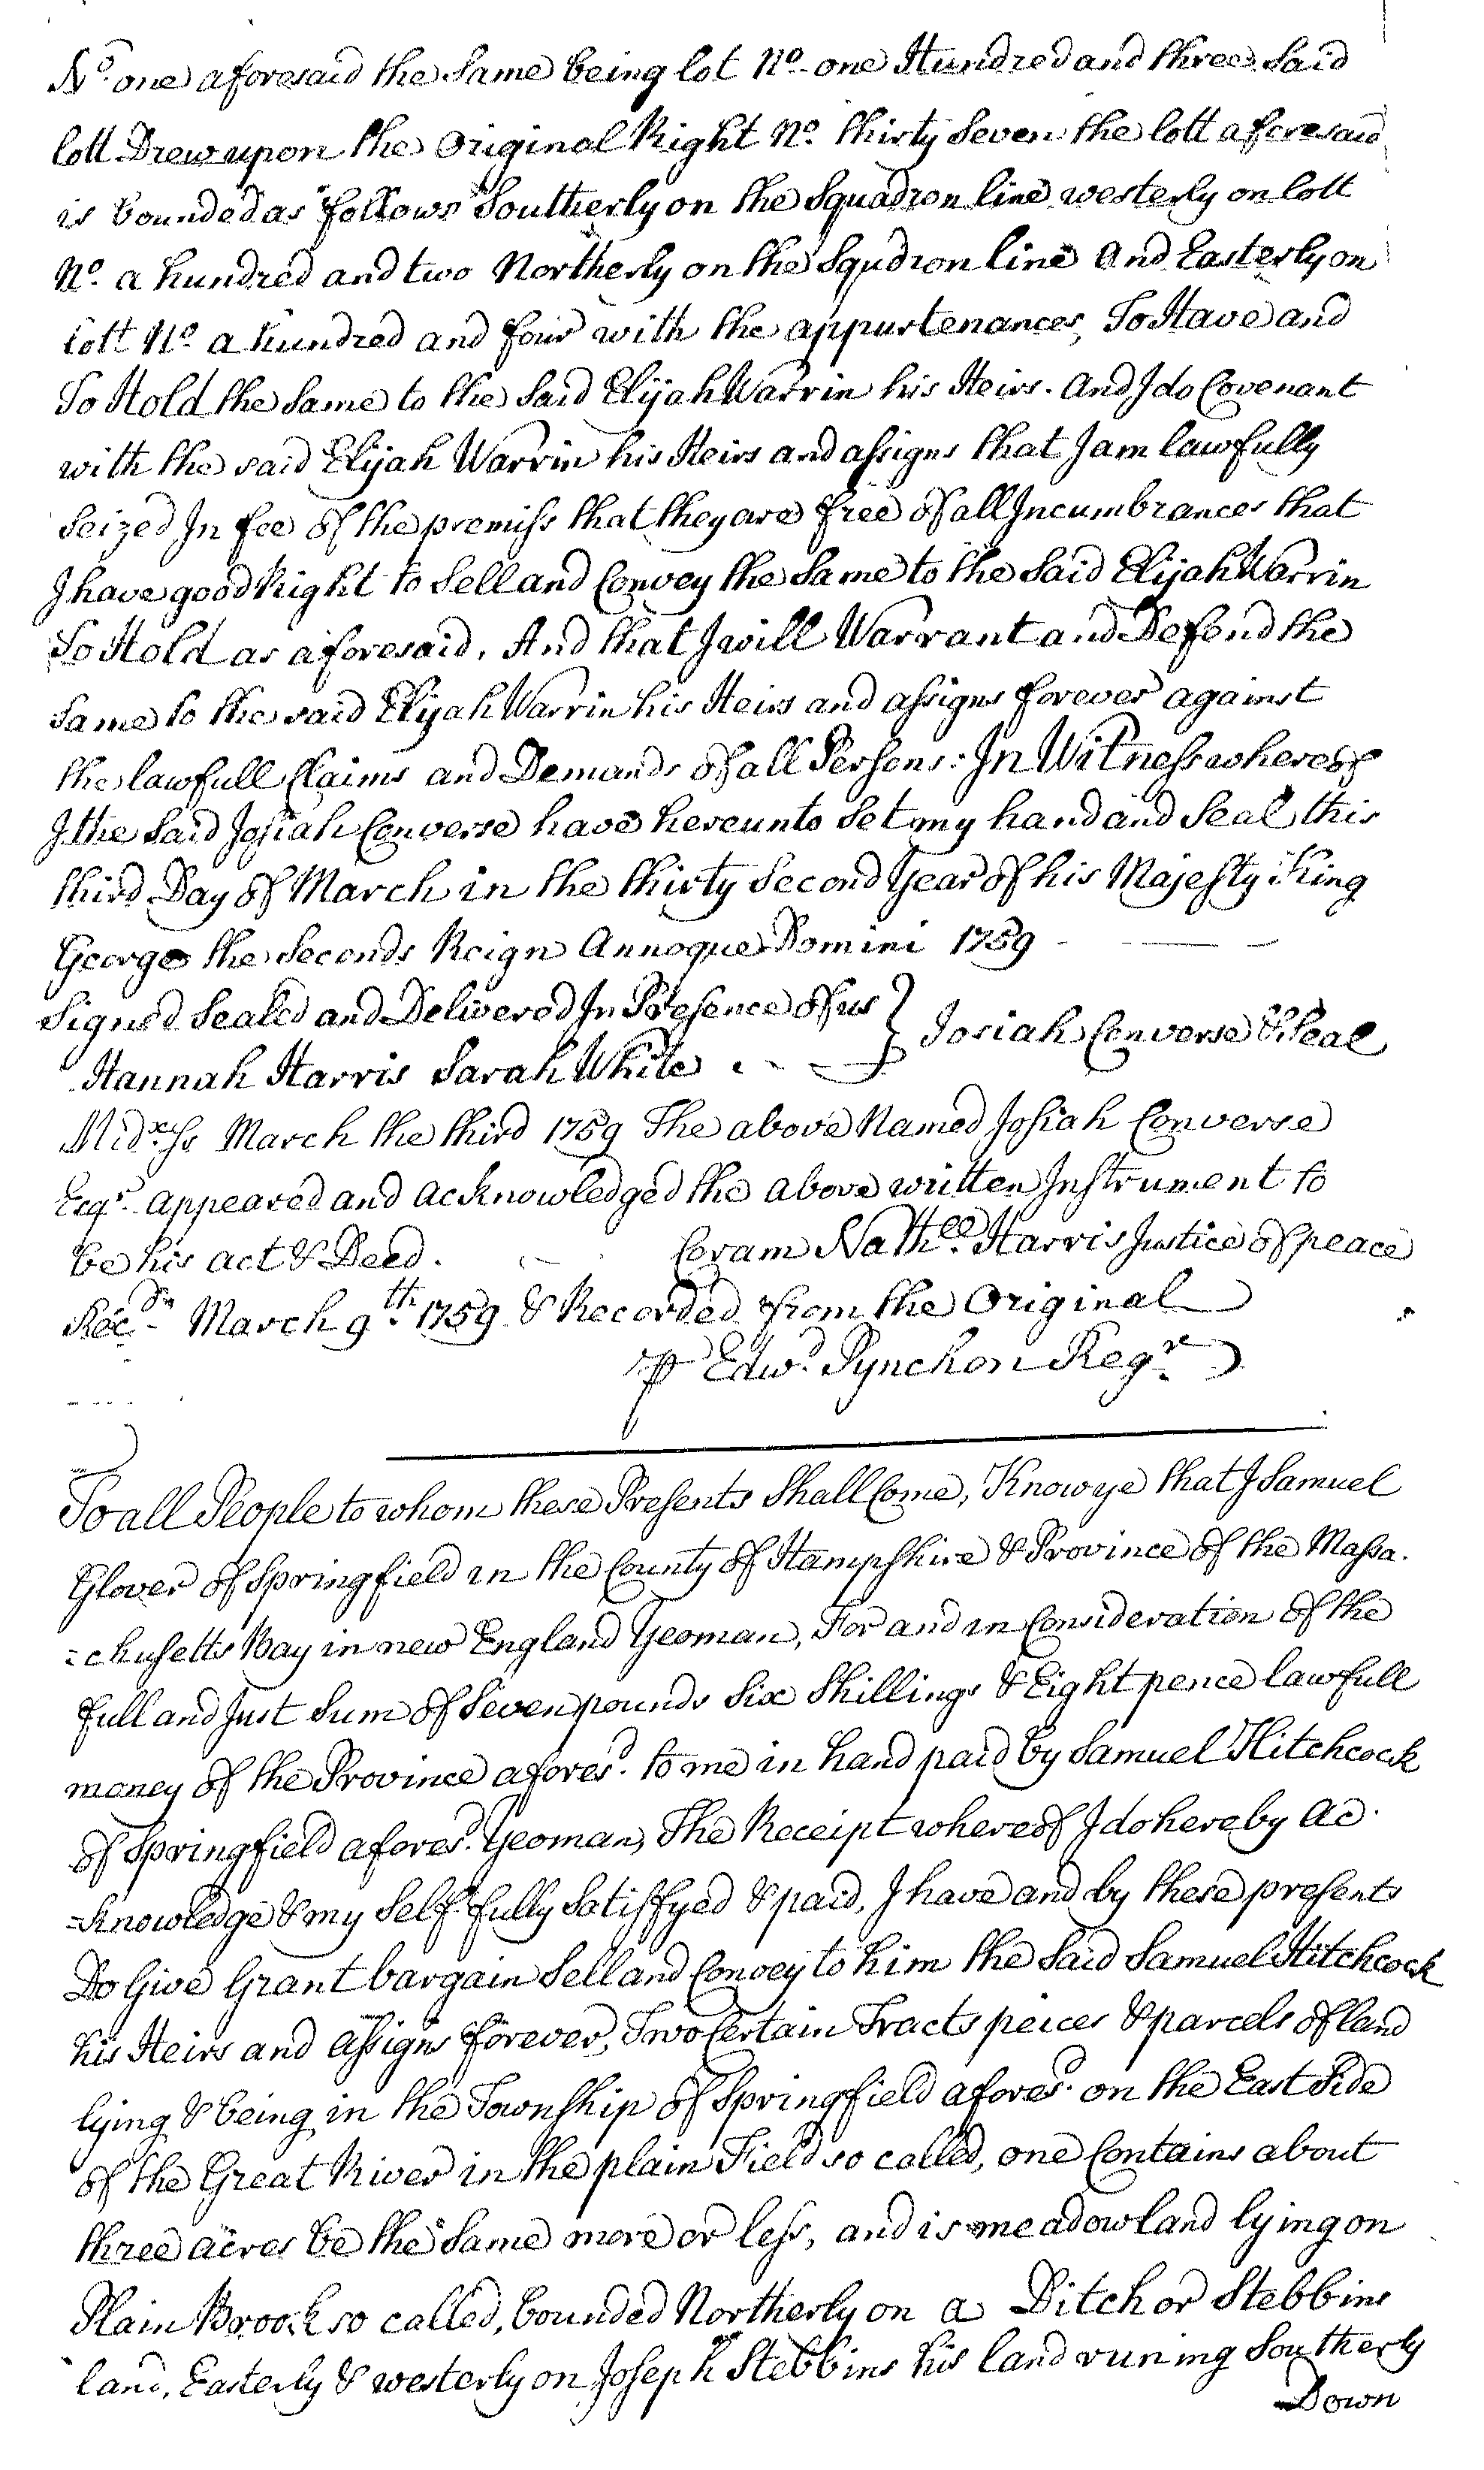 No. one aforesaid the Same being lot No. one Hundred and three Said
lott Drew upon the Original Right No. thirty Seven the lott aforesaid
is bounded as follows Southerly on the Squadron line westerly on lott
No. a hundred and two Northerly on the Squdron line and Easterly on
lott No. a hundred and four with the appurtenances, To Have and
To Hold the Same to the Said Elijah Warrin his Heirs. And I do Covenant
with the said Elijah Warrin his Heirs and assigns that I am lawfully
Seized In fee of the premiss that they are free of all Incumbrances that
I have good Right to Sell and Convey the Same to the Said Elijah Warrin
To Hold as aforesaid. And that I will Warrant and Defend the
Same to the said Elijah Warrin his Heirs and assigns forever against
the lawfull Claims and Demands of all Persons: In Witness whereof
I the Said Josiah Converse have hereunto Set my hand and Seal this
third Day of March in the thirty Second Year of his Majesty King
George the Seconds Reign Annoque Domini 1759
Signed Sealed and Delivered In Presence of us } Josiah Converse & Seal
Hannah Harris Sarah White
Midxss March the third 1759 The above Named Josiah Converse
Esqr. appeared and acknowledged the above written Instrument to
be his act & Deed. Coram Nathll. Harris Justice of peace
Recd. March 9th. 1759 & Recorded from the Original
p Edwd. Pynchon Regr.
To all People to whom these Presents Shall Come, Know ye that I Samuel
Glover of Springfield in the County of Hampshire & Province of the Massa-
=chusetts Bay in new England Yeoman, For and in Consideration of the
full and Just Sum of Seven pounds Six Shillings & Eight pence lawfull
money of the Province afores.d to me in hand paid by Samuel Hitchcock
of Springfield afores.d Yeoman, The Receipt whereof I do hereby Ac-
=knowledge & my Self fully Satisfyed & paid, I have and by these presents
Do Give Grant bargain Sell and Convey to him the Said Samuel Hitchcock
his Heirs and Assigns forever, Two Certain Tracts peices & parcels of land
lying & being in the Township of Springfield afores.d on the East Side
of the Great River in the plain Field so called, one Contains about
three acres be the Same more or less, and is meadow land lying on
Plain Brook so called, bounded Northerly on a Ditch or Stebbins
land, Easterly & westerly on Joseph Stebbins his land runing Southerly
Down